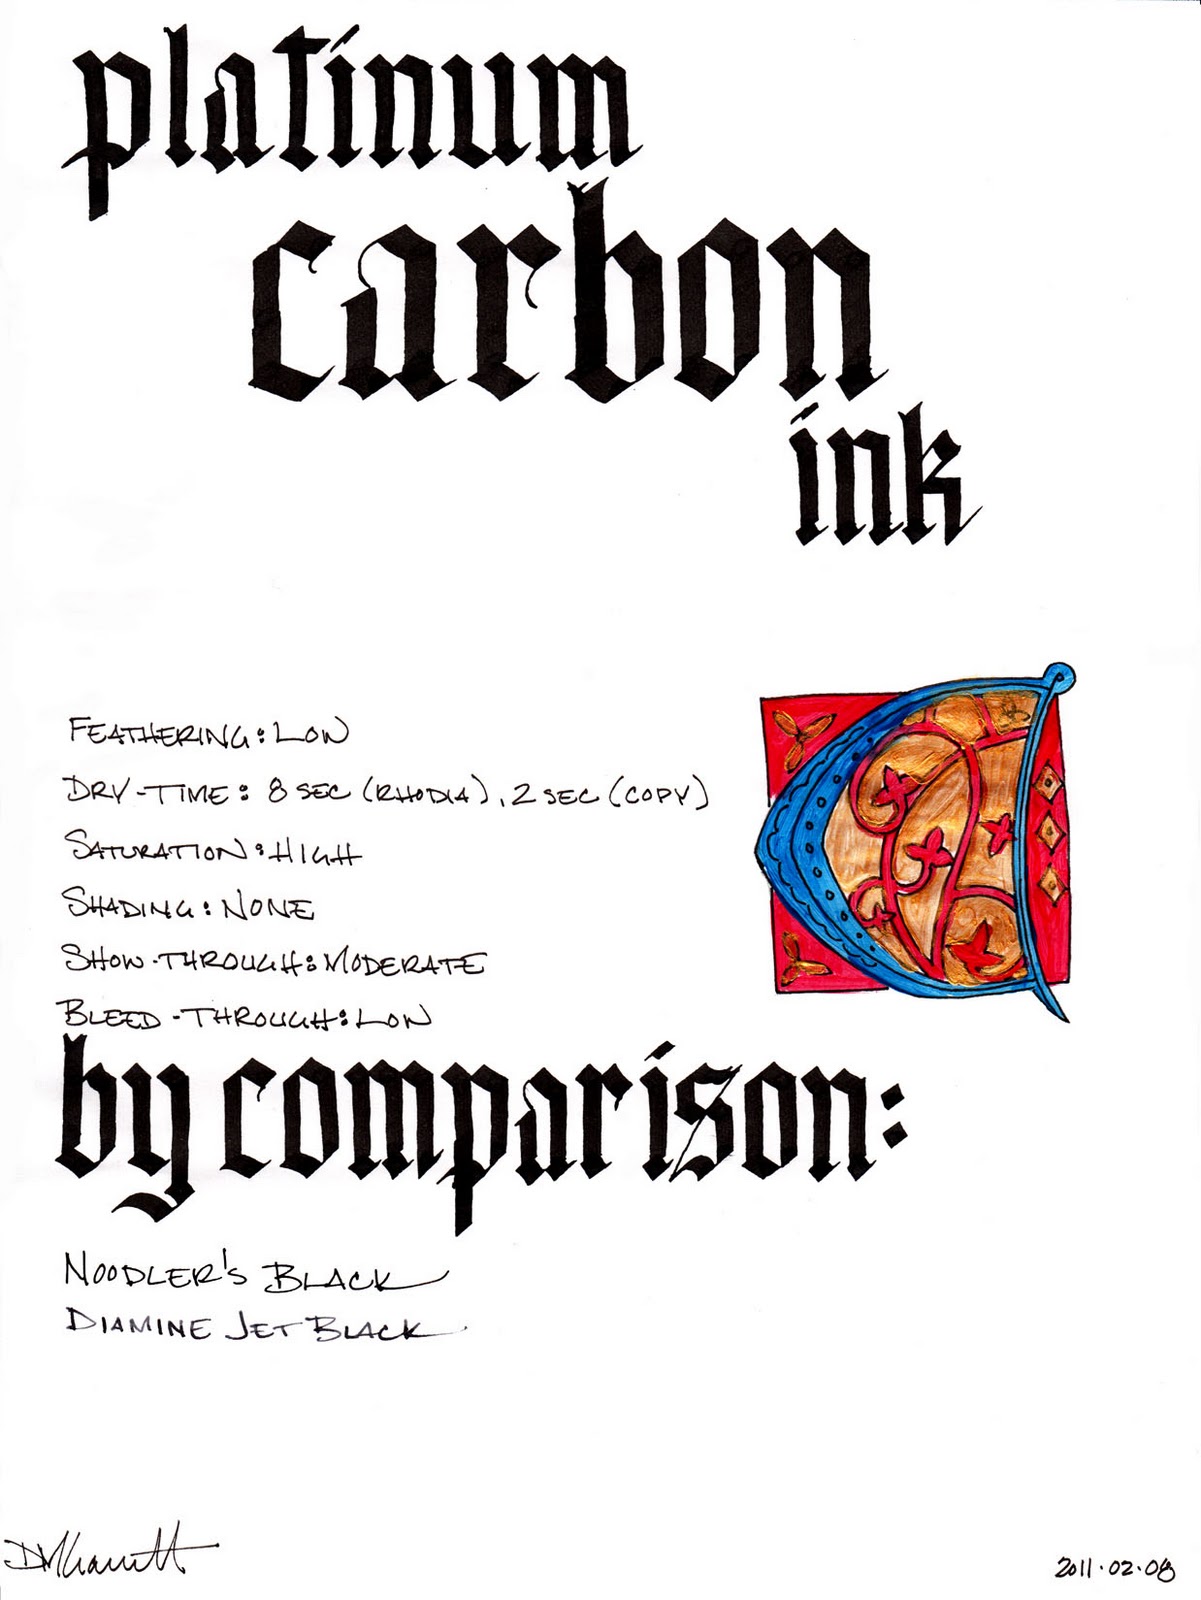 platinum
carbon
ink
FEATHERING: LOW
DRY-TIME: 8 SEC (RHODIA), 2 SEC (COPY)
SATURATION: HIGH
SHADING: NONE
SHOW-THROUGH: MODERATE
BLEED-THROUGH: LOW
by comparison:
NOODLER'S BLACK
DIAMINE JET BLACK
2011.02.08